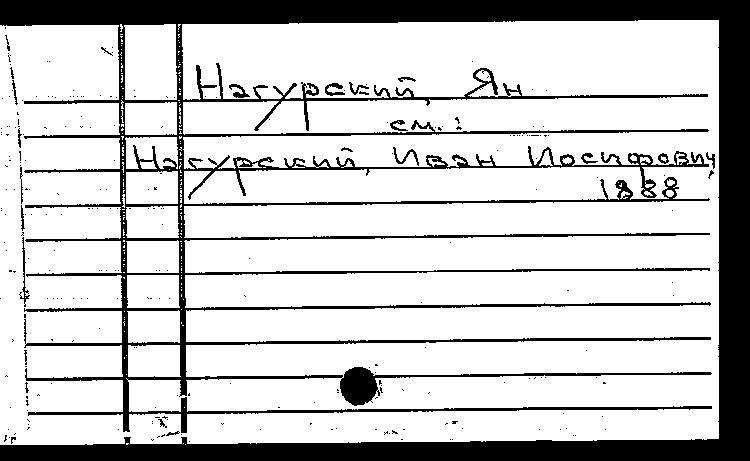 Нагурский, Ян
см.:
Нагурский, Иван Иосифович,
1888